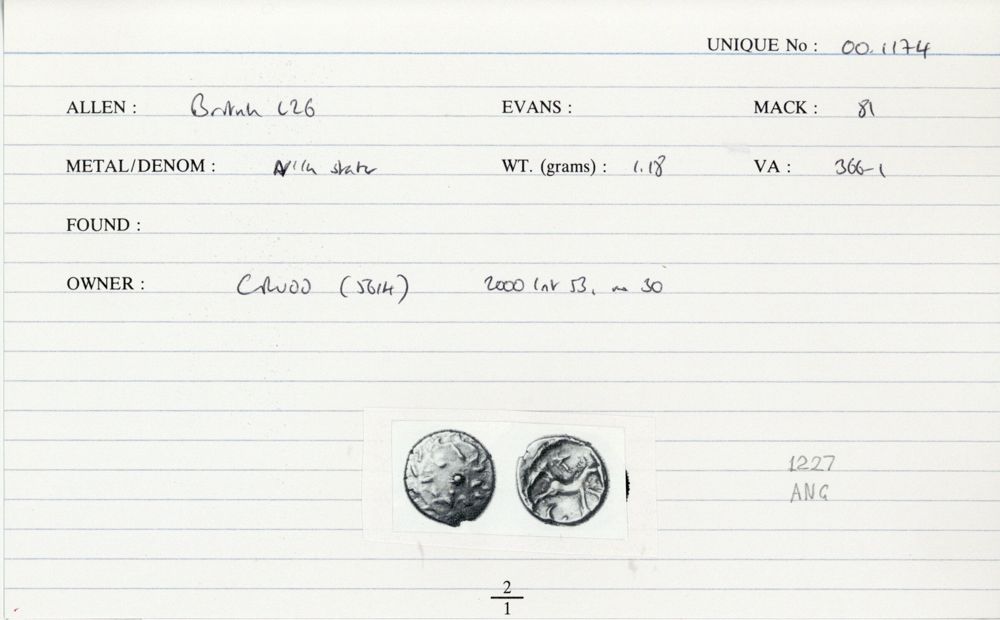 UNIQUE No : 00.1174
ALLEN : British L26 EVANS : MACK : 81
METAL/DENOM : stater WT. (grams) : 1.18 VA : 366-1
FOUND :
OWNER : (5614) 2000 53, no 30
1227
ANG
2
1